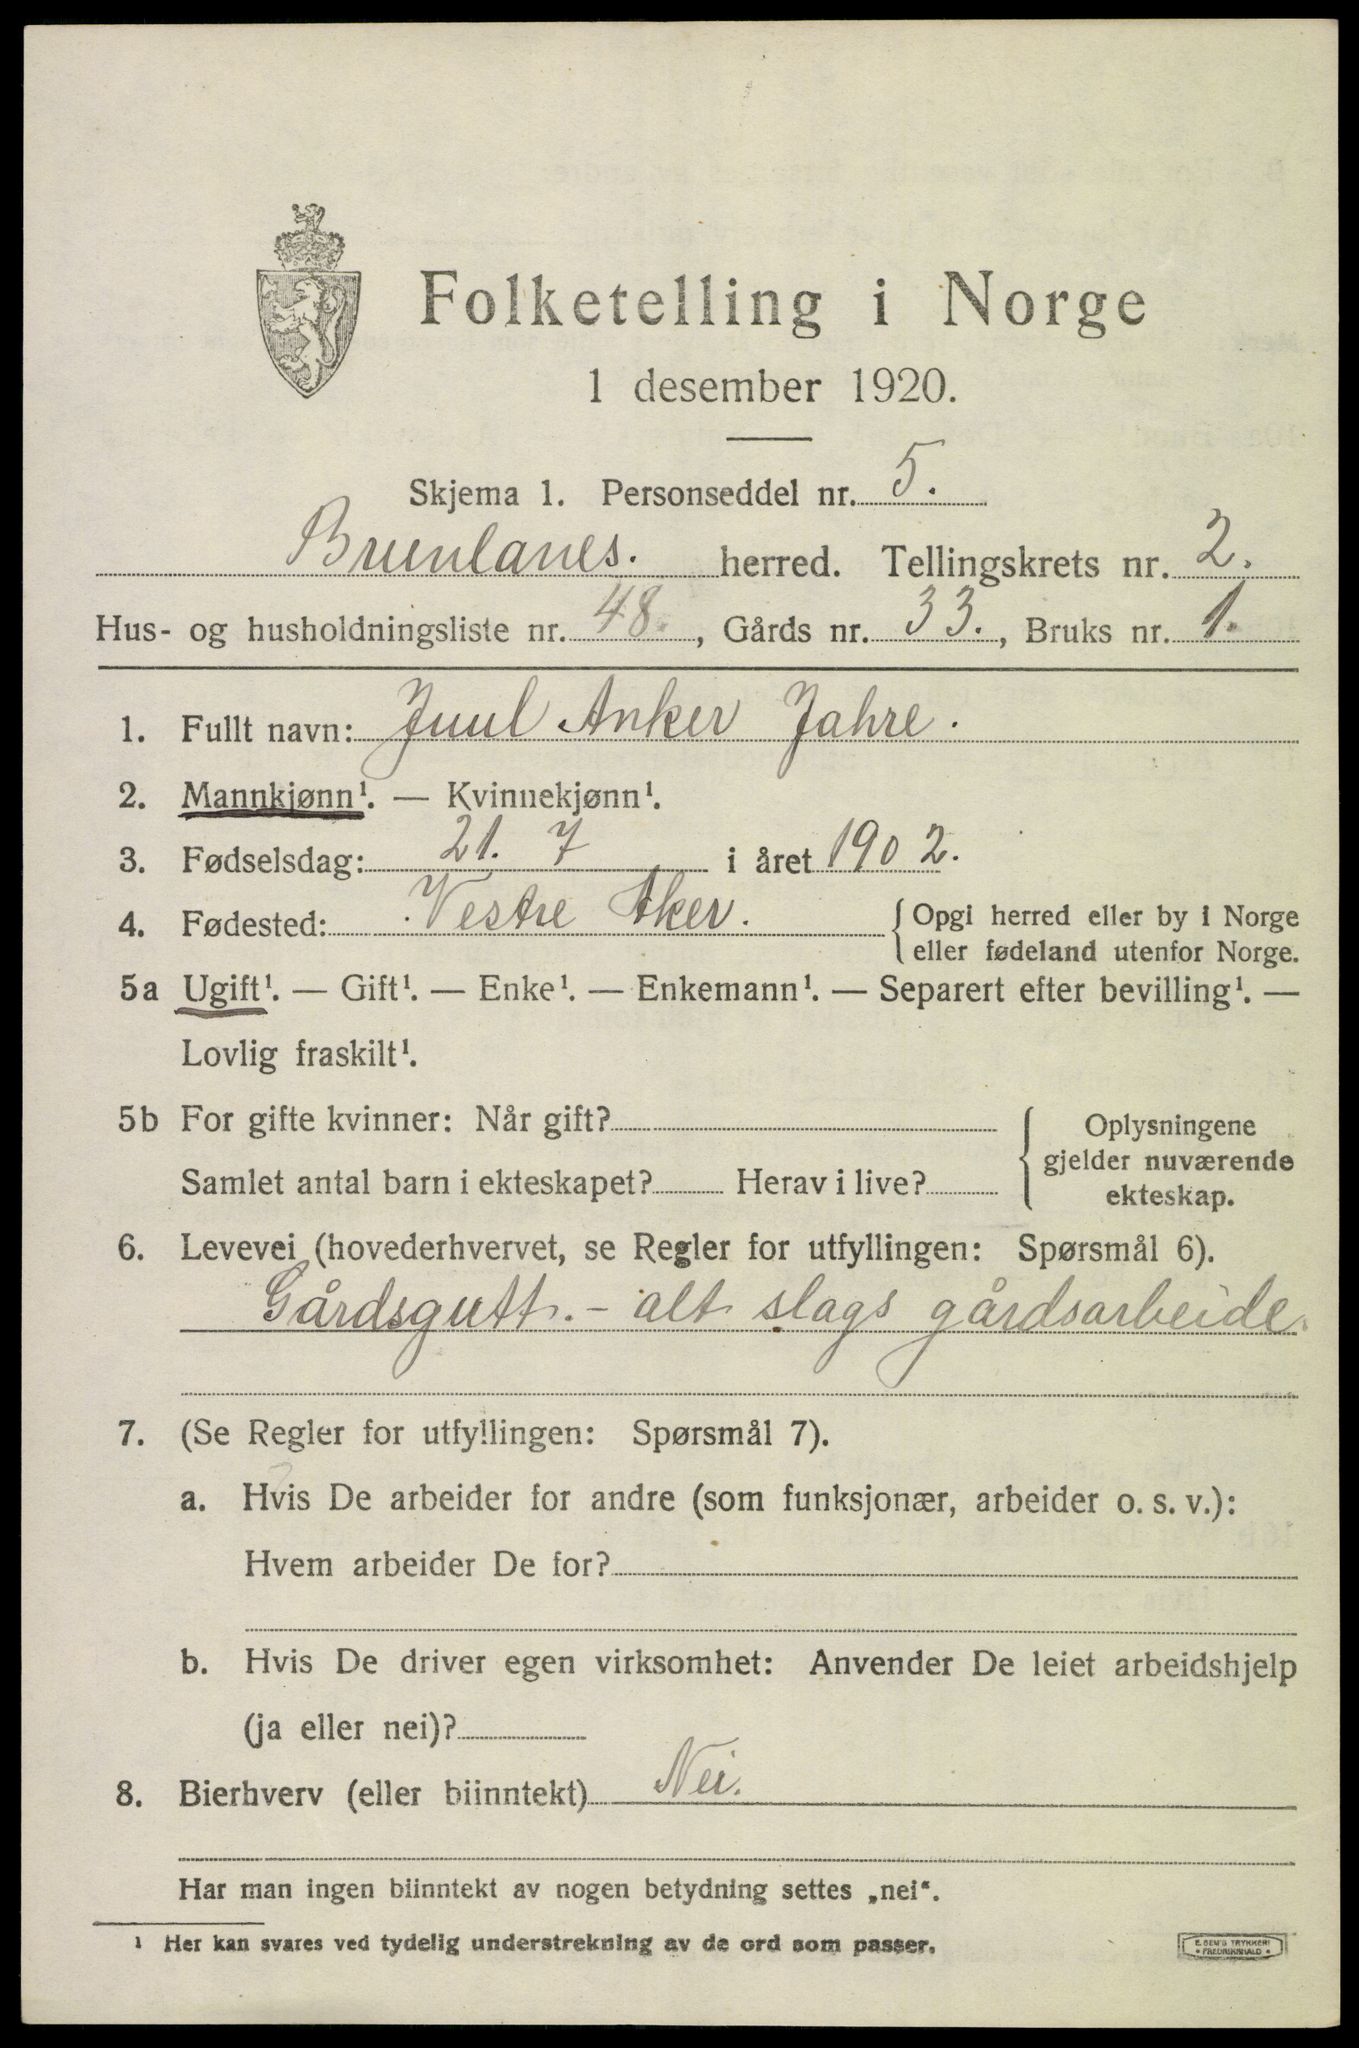 Folketelling i Norge
1 desember 1920.
Skjema 1. Personseddel nr. 5.
Brunlanes. herred. Tellingskrets nr. 2.
Hus- og husholdningsliste nr. 48., Gårds nr. 33., Bruks nr. 1.
1. Fullt navn: Juul Anker Jahre.
2. Mannkjønn¹. — Kvinnekjønn¹.
3. Fødselsdag: 21. 7 i året 1902.
4. Fødested: Vestre Aker. { Opgi herred eller by i Norge
eller fødeland utenfor Norge.
5a Ugift¹. — Gift¹. — Enke¹. — Enkemann¹. — Separert efter bevilling¹. —
Lovlig fraskilt¹.
5b For gifte kvinner: Når gift? { Oplysningene
gjelder nuværende
Samlet antal barn i ekteskapet? Herav i live?
ekteskap.
6. Levevei (hovederhvervet, se Regler for utfyllingen: Spørsmål 6).
Gårdsgutt. – alt slags gårdsarbeide.
7. (Se Regler for utfyllingen: Spørsmål 7).
a. Hvis De arbeider for andre (som funksjonær, arbeider o. s. v.):
Hvem arbeider De for?
b. Hvis De driver egen virksomhet: Anvender De leiet arbeidshjelp
(ja eller nei)?
8. Bierhverv (eller biinntekt) Nei.
Har man ingen biinntekt av nogen betydning settes „nei“.
¹ Her kan svares ved tydelig understrekning av de ord som passer.
E. SEM'S TRYKKERI
• FREDRIKSHALD •